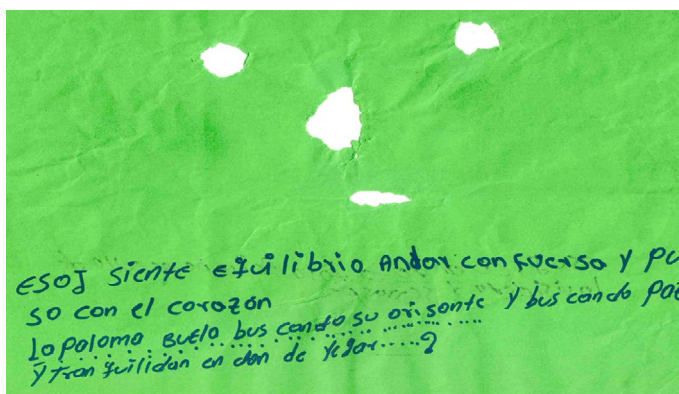 ESOJ siente equilibrio Andar con fuersa y pu
so con el corazon
la paloma buela bus cando su orisonte y bus cando paz
y tran quilidan en don de yegar.....?